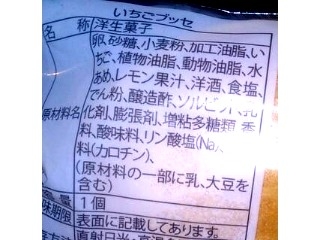 いちごブッセ
名 称 洋生菓子
卵、砂糖、小麦粉、加工油脂、い
ちご、植物油脂、動物油脂、水
あめ、レモン果汁、洋酒、食塩、
でん粉、醸造酢、ソルビット、乳
原材料名 化剤、膨張剤、増粘多糖類、香
料、酸味料、リン酸塩(Na)、
料(カロチン)、
(原材料の一部に乳、大豆を
含む)
量 1個
味期限 表面に記載してあります。
存方法 直射日光・高温